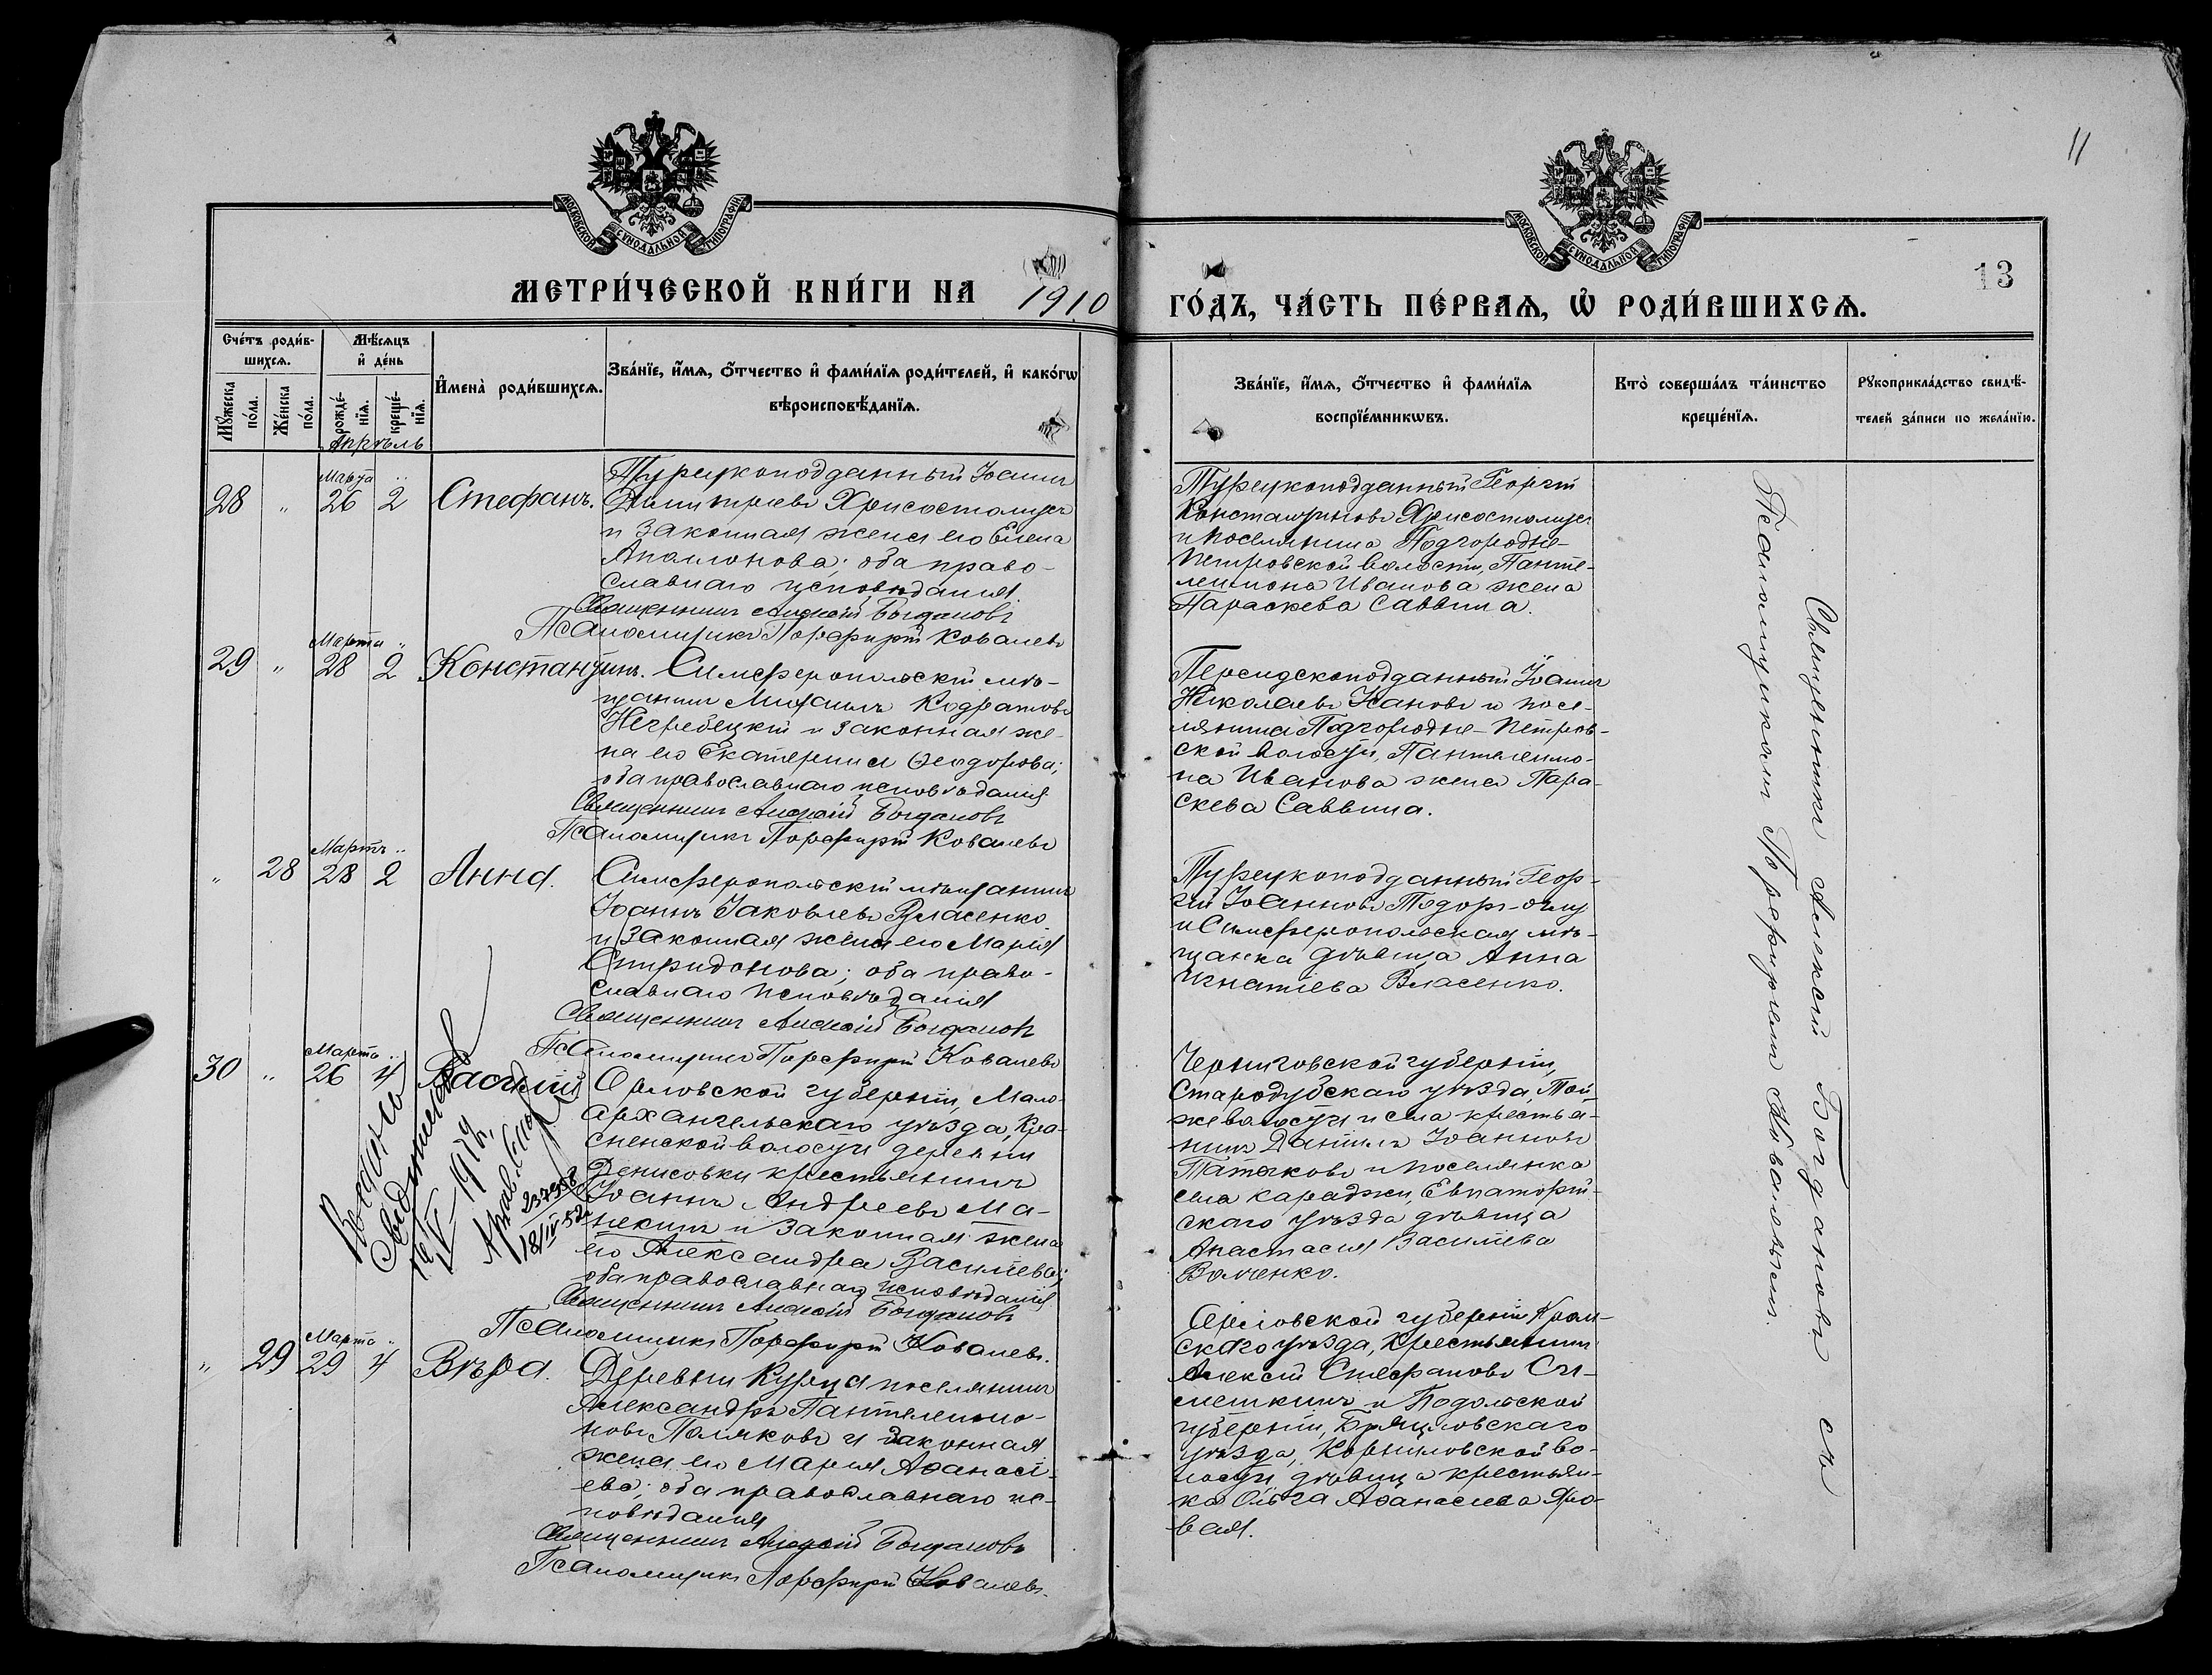 11
13
МОСКОВСКОЙ СѴНОДАЛЬНОЙ ТИПОГРАФІИ
МОСКОВСКОЙ СѴНОДАЛЬНОЙ ТИПОГРАФІИ
МЕТРИ́ЧЕСКОЙ КНИ́ГИ НА 1910
ГО́ДЪ, ЧА́СТЬ ПЕ́РВАѦ, Ѡ҆ РОДИ́ВШИХСѦ.
Сче́тъ роди́в-
шихсѧ.
Мѹ́жеска по́ла.
Же́нска по́ла.
Мѣ́сѧцъ
и҆ де́нь
рожде́-
нїѧ.
креще́-
нїѧ.
И҆мена̀ роди́вшихсѧ.
Зва́нїе, и҆́мѧ, ѻ҆́тчество и҆ фами́лїѧ роди́телей, и҆ како́гѡ
вѣроисповѣ́данїѧ.
Зва́нїе, и҆́мѧ, ѻ҆́тчество и҆ фами́лїѧ
воспрїе́мникѡвъ.
Кто̀ соверша́лъ та́инство
креще́нїѧ.
Рꙋкоприкла́дство свидѣ́-
телей за́писи по жела́нїю.
Апрѣль
Марта
28 " 26 2 Стефанъ.
Турецкоподданный Іоаннъ
Димитріевъ Хрисостомусъ
и законная жена его Елена
Аполлонова; оба право-
славнаго исповѣданія.
Священникъ Алексій Богдановъ
Псаломщикъ Порфирій Ковалевъ
Турецкоподданный Георгій
Константиновъ Хрисостомусъ
и поселянина Подгородне-
Петровской волости, Панте-
леимона Иванова жена
Параскева Саввина.
Марта
29 " 28 2 Константинъ.
Симферопольскій мѣ-
щанинъ Михаилъ Кодратовъ
Негребецкій и законная же-
на его Екатерина Ѳеодорова;
оба православнаго исповѣданія
Священникъ Алексій Богдановъ
Псаломщикъ Порфирій Ковалевъ
Персидскоподданный Іоаннъ
Николаевъ Хановъ и посе-
лянина Подгородне-Петров-
ской волости, Пантелеимо-
на Иванова жена Пара-
скева Саввина.
Мартъ
" 28 28 2 Анна.
Симферопольскій мѣщанинъ
Іоаннъ Іаковлевъ Власенко
и законная жена его Марія
Спиридонова; оба право-
славнаго исповѣданія
Священникъ Алексій Богдановъ
Псаломщикъ Порфирій Ковалевъ
Турецкоподданный Геор-
гій Іоанновъ Тодоръ-оглу
и Симферопольская мѣ-
щанка дѣвица Анна
Игнатіева Власенко.
Марта
30 " 26 4 Василій
Орловской губерніи, Мало-
архангельскаго уѣзда, Кра-
сненской волости деревни
Денисовки крестьянинъ
Іоаннъ Андреевъ Ма-
некинъ и законная жена
его Александра Василіева;
оба православнаго исповѣданія
Священникъ Алексій Богдановъ
Псаломщикъ Порфирій Ковалевъ.
Черниговской губерніи,
Стародубскаго уѣзда, Той
же волости и села крестья-
нинъ Даніилъ Іоанновъ
и поселянка
села Караджи, Евпаторій-
скаго уѣзда дѣвица
Анастасія Василіева
Волченко.
18/IV 52
Марта
" 29 29 4 Вѣра.
Деревни Курца поселянинъ
Александръ Пантелеимо-
новъ Поляковъ и законная
жена его Марія Аѳанасі-
ева; оба православнаго ис-
повѣданія
Священникъ Алексій Богдановъ
Псаломщикъ Порфирій Ковалевъ.
Орловской губерніи Кром-
скаго уѣзда, крестьянинъ
Алексій Стефановъ
и Подольской
губерніи, Брацловскаго
уѣзда, во-
лости, дѣвица крестьян-
ка Ольга Аѳанасіева Яро-
вая.
Священникъ Алексій Богдановъ съ
Псаломщикомъ Порфиріемъ Ковалевымъ